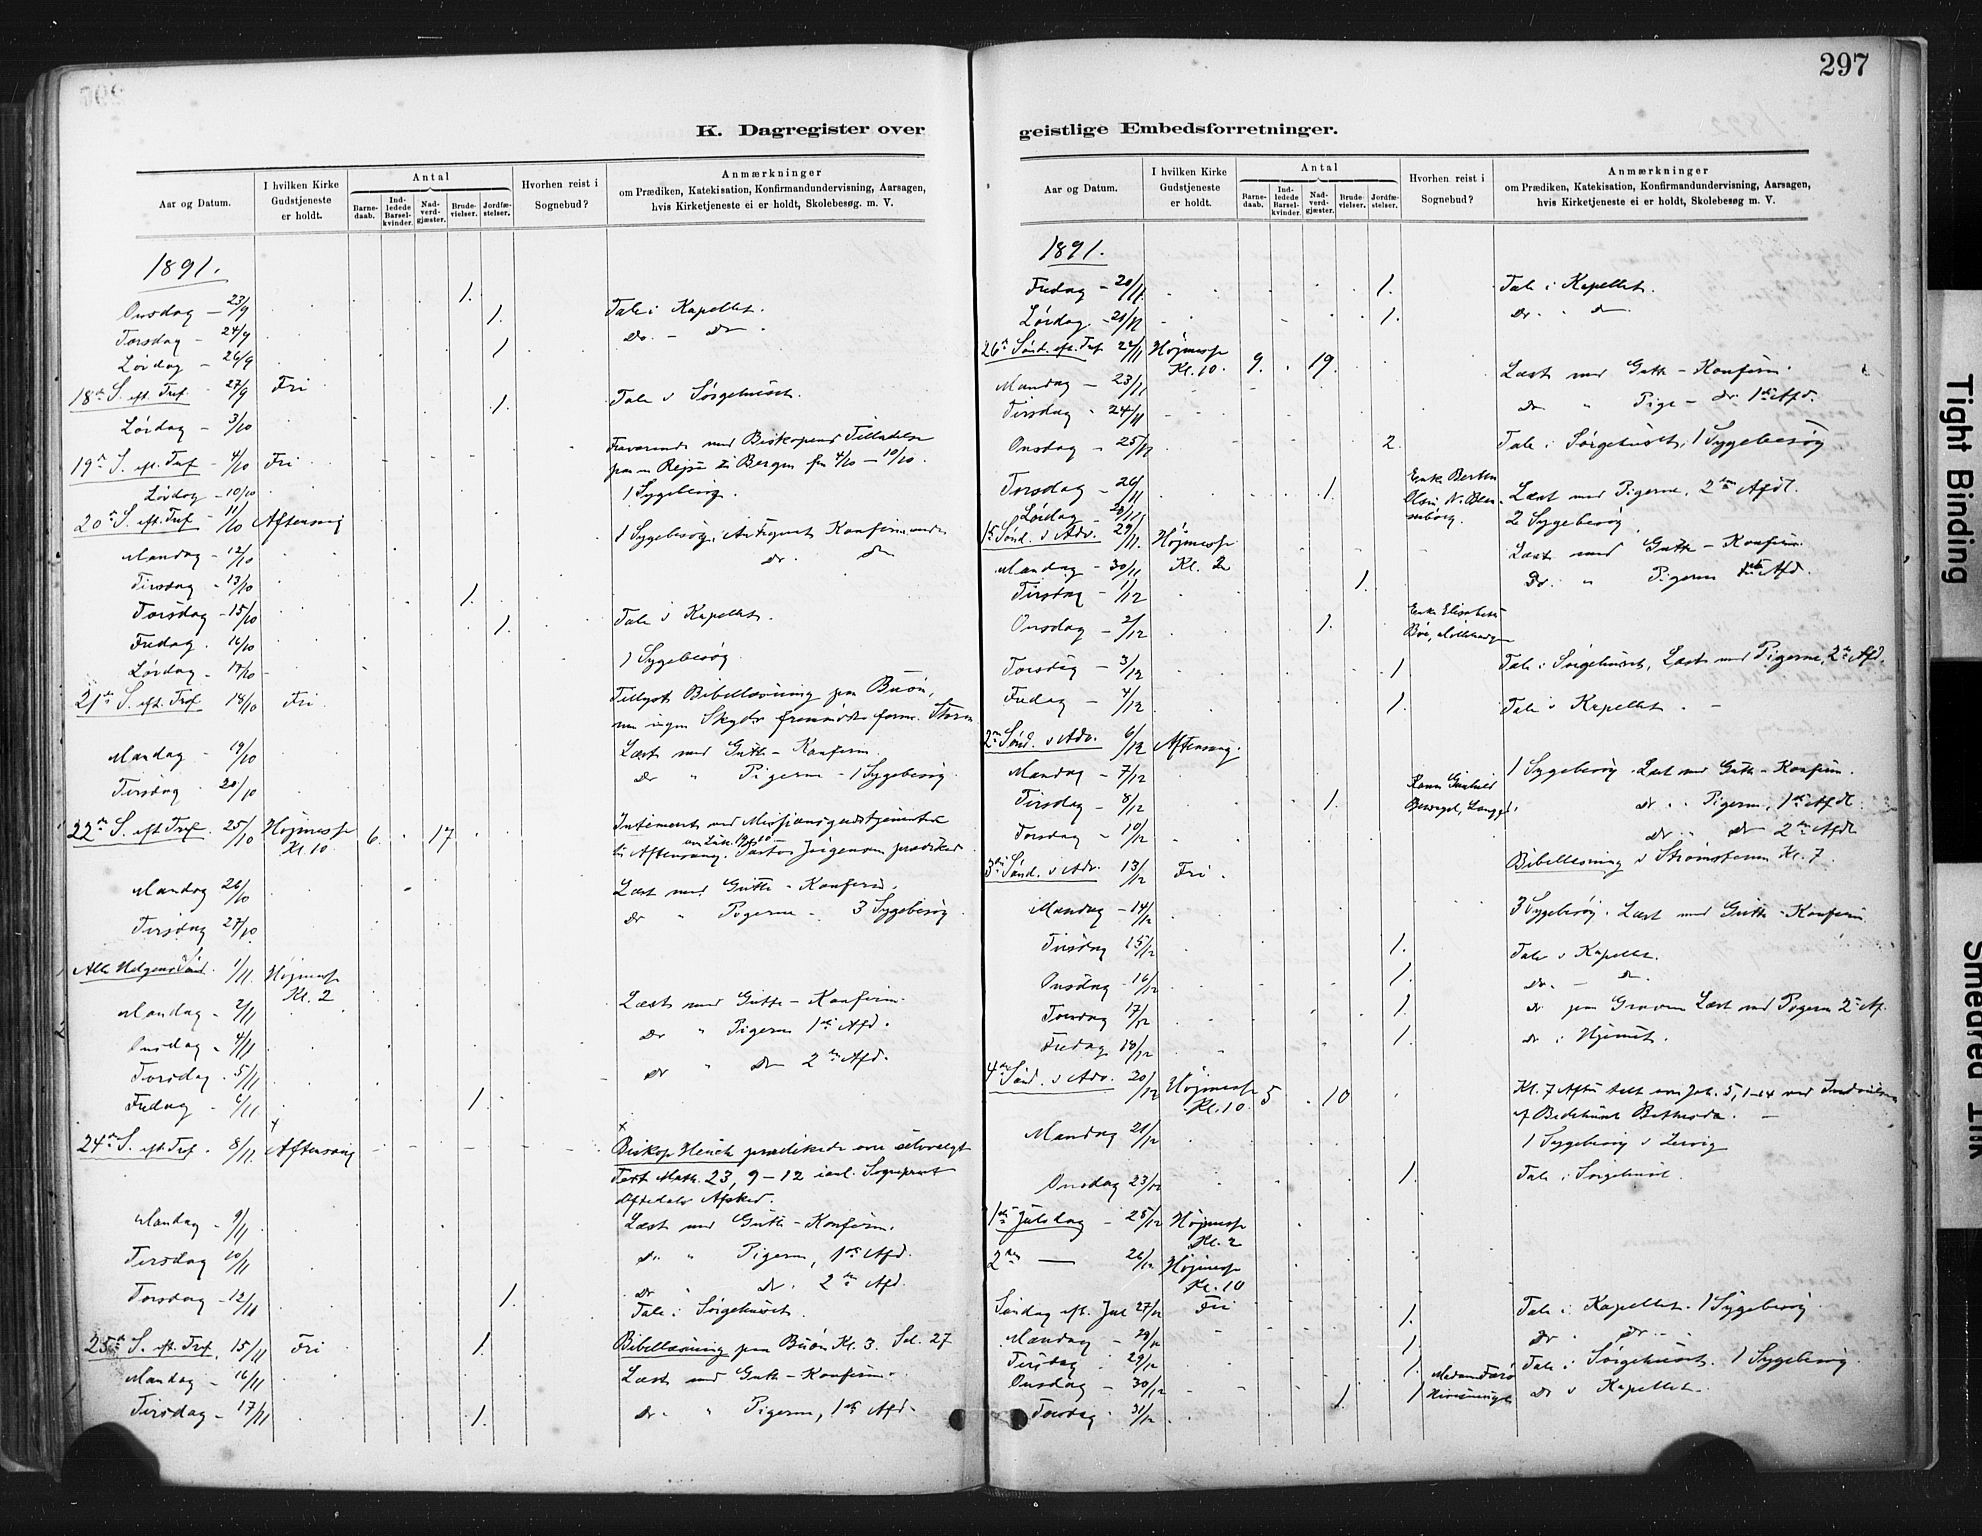 297
K. Dagregister over
geistlige Embedsforretninger.
Aar og Datum.
I hvilken Kirke Gudstjeneste er holdt.
Antal
Barnedaab.
Indledede Barselkvinder.
Nadverdgjæster.
Brudevielser.
Jordfæstelser.
Hvorhen reist i Sognebud?
Anmærkninger
om Prædiken, Katekisation, Konfirmandundervisning, Aarsagen,
hvis Kirketjeneste ei er holdt, Skolebesøg m. V.
1891.
Onsdag - 23/9 1.
Torsdag - 24/9 1. Tale i Kapellet.
Lördag - 26/9 1. Do - do
18de S. eft. Tref. 27/9 Fri
Lördag - 3/10 1. Tale i Sørgehuset.
19de S. eft. Tref - 4/10 Fri Fraværende med Biskopens Tilladelse
paa en Rejse til Bergen fra 4/10 - 10/10.
Lördag - 10/10 1 Sygebesøg.
20de S. eft. Tref - 11/10 Aftensang
Mandag - 12/10 1 Sygebesøg. Konfirmander
Tirsdag - 13/10 do. do
Torsdag - 15/10 1.
Fredag. 16/10 1. Tale i Kapellet.
Lördag. 17/10 1 Sygebesøg
21de S. eft. Tref 18/10 Fri. Tillyst Bibellæsning paa Buön,
men ingen Skyds
Mandag - 19/10 Læst med Gutte-Konfirm.
Tirsdag - 20/10 do " Pigerne - 1 Sygebesøg.
22de S. eft Tref. 25/10 Højmesse Kl. 10 6. 17 Missionsgudstjeneste
til Aftensang. Pastor Jörgensen prædiked
Mandag 26/10 Læst med Gutte-Konfirm.
Tirsdag 27/10 do " Pigerne - 3 Sygebesøg
Alle Helgens Sönd. 1/11 Højmesse Kl. 2
Mandag - 2/11 Læst med Gutte-Konfirm.
Onsdag - 4/11 do " Pigerne 1ste Afd.
Torsdag. 5/11 do " do 2den Afd.
Fredag - 6/11 1.
24de S. eft Tref. 8/11. Aftensang Biskop Heuch prædikede over selvvalgt
Text Math. 23, 9-12
Oftedals Afsked.
Mandag - 9/11 Læst med Gutte-Konfirm.
Tirsdag 10/11 do " Pigerne, 1ste Afd.
Torsdag - 12/11 1. do " do. 2den Afd.
Tale i Sørgehuset.
25de S. eft. Tref. 15/11 Fri 1. Bibellæsning paa Buön Kl. 3. Sal. 27
Mandag - 16/11 Læst med Gutte-Konfirm.
Tirsdag - 17/11 1. do. " Pigerne, 1ste Afd.
Aar og Datum.
I hvilken Kirke Gudstjeneste er holdt.
Antal
Barnedaab.
Indledede Barselkvinder.
Nadverdgjæster.
Brudevielser.
Jordfæstelser.
Hvorhen reist i Sognebud?
Anmærkninger
om Prædiken, Katekisation, Konfirmandundervisning, Aarsagen,
hvis Kirketjeneste ei er holdt, Skolebesøg m. V.
1891.
Fredag - 20/11 1. Tale i Kapellet.
Lördag - 21/11 1. do. do
26de Sönd. eft. Tref. 22/11 Højmesse Kl. 10. 9. 19.
Mandag - 23/11 Læst med Gutte-Konfirm.
Tirsdag - 24/11 do " Pige - do 1ste Afd.
Onsdag - 25/11 2. Tale i Sørgehuset, 1 Sygebesøg
Torsdag - 26/11 1. Enke Olsen Læst med Pigerne, 2den Afdl.
Lördag - 28/11 2 Sygebesøg.
1ste Sönd. i Adv. 29/11. Højmesse Kl. 2
Mandag - 30/11 Læst med Gutte-Konfirm.
Tirsdag - 1/12 1. Do. " Pigerne 1ste Afd.
Onsdag - 2/12 1. Enke Elisabeth
Torsdag - 3/12 1 Tale i Sørgehuset, Læst med Pigerne, 2den Afd.
Fredag - 4/12 1. Tale i Kapellet. -
2den Sönd. i Adv. 6/12 Aftensang.
Mandag - 7/12 1 Sygebesøg. Læst med Gutte-Konfirm.
Tirsdag - 8/12 1. do " Pigerne, 1ste Afdl.
Torsdag - 10/12 do " do 2den Afdl
3die Sönd. i Adv. 13/12 Fri. Bibellæsning i Strömstenen Kl. 7.
Mandag - 14/12 3 Sygebesøg. Læst med Gutte-Konfirm
Tirsdag 15/12 1. Tale i Kapellet.
Onsdag - 16/12 1. do. - do.
Torsdag 17/12 1. do paa Graven Læst med Pigerne 2den Af.
Fredag 18/12 1. do i Hjemmet.
4de Sönd. i Adv. 20/12 Højmesse Kl. 10 5 10 Kl. 7 Aften talt over Joh. 5, 1-14 ved Indvielsen
af Bedehuset Bethesda. -
Mandag 21/12 1 Sygebesøg i Lervig
Onsdag 23/12 1. Tale i Sørgehuset
1ste Juledag - 25/12 Højmesse Kl. 2
2den — 26/12 Højmesse Kl. 10
Söndag eft. Jul 27/12 Fri 1. Tale i Kapellet. 1 Sygebesøg.
Mandag - 28/12 1 do. do. -
Tirsdag 29/12 1. Tale i Sørgehuset. 1 Sygebesøg.
Onsdag - 30/12 1. 1 do i Kapellet.
Torsdag 31/12
Tight Binding
Smeared Ink